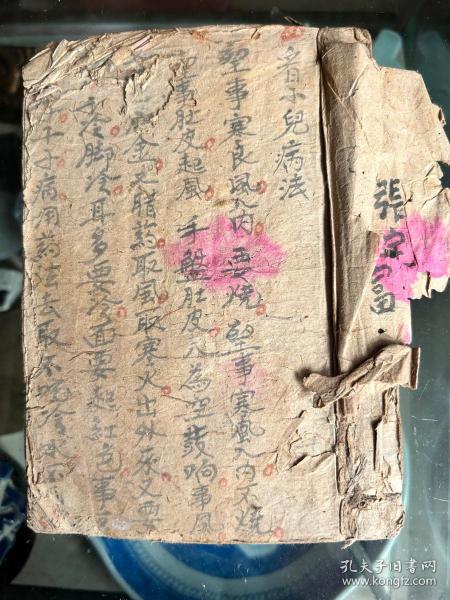 看小兒病法
望事寒良風入内要燒望事寒風入内不燒
事肚皮起風手盤肚皮八為空鼓响事風
金木腊药取風取寒火出外來又要
手冷脚冷耳多要冷面要起紅色事
子病用药法去取不吃冷
張富
孔夫子旧书网
www.kongfz.com